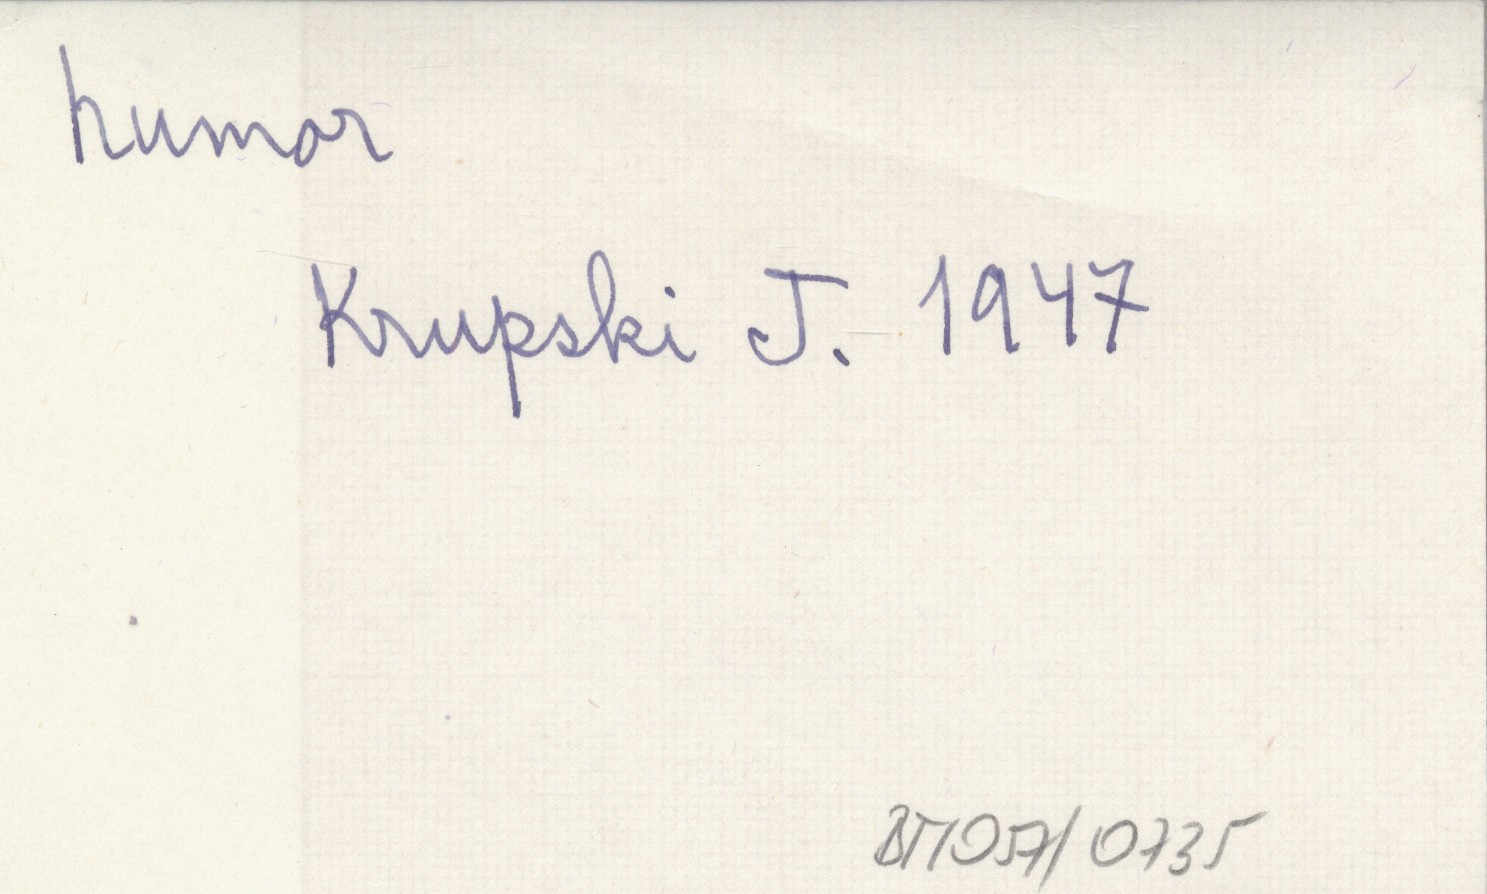 humor
Krupski J. 1947
BM057/0735